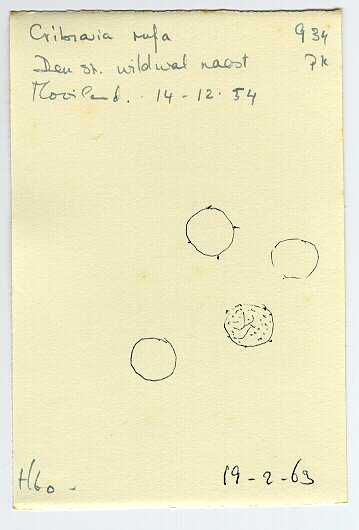 Cribraria rufa 934
Den st. wildwal naast 7k
Mooiland. 14-12-54
H60 -
19-2-63